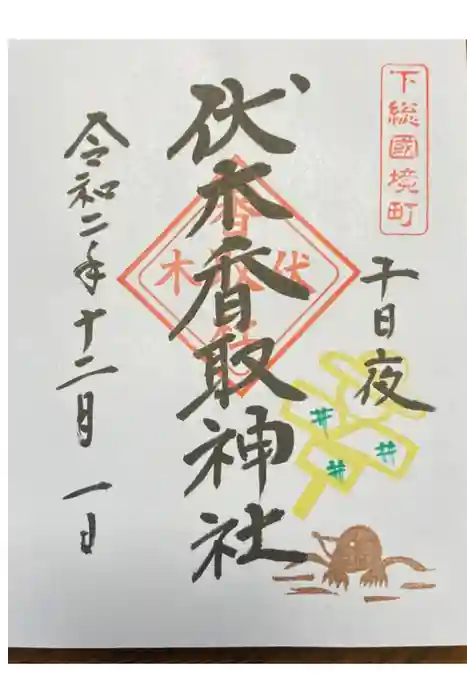 下総國境町
十日夜
伏木香取神社
伏木
井
井
井
令和二年十二月一日